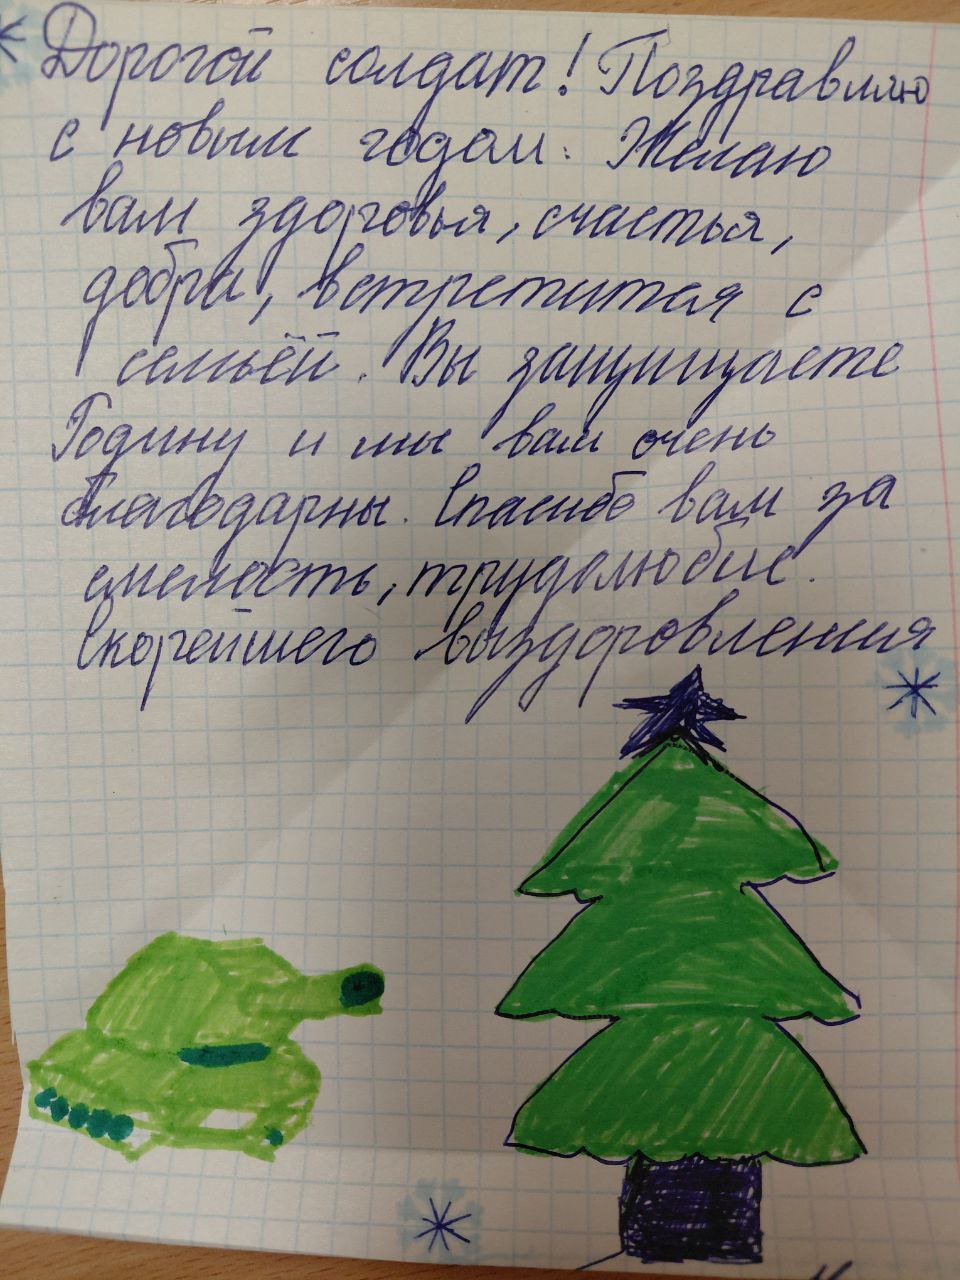 Дорогой солдат! Поздравляю
с новым годом. Желаю
вам здоровья, счастья,
добра, встретится с
семьёй. Вы защищаете
Родину и мы вам очень
благодарны. Спасибо вам за
смелость, трудолюбие.
Скорейшего выздоровления